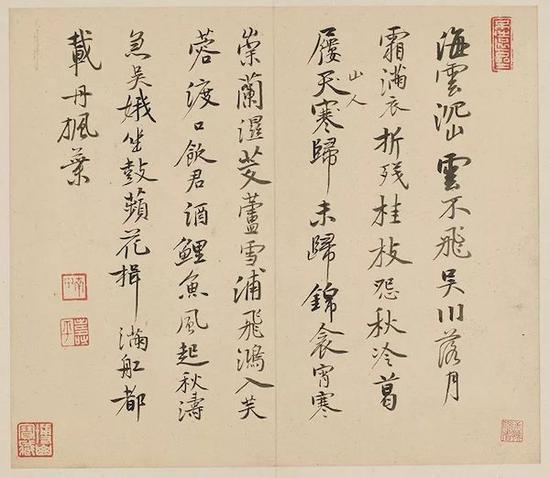 海雲沉雲不飛吳川落月
霜滿衣折殘桂枝怨秋冷葛
屨天寒歸未歸錦衾宵寒
山人
崇蘭濕芰蘆雪浦飛鴻入芙
蓉渡口飲君酒鯉魚風起秋濤
急吳娥坐鼓蘋花楫滿舡都
載丹楓葉